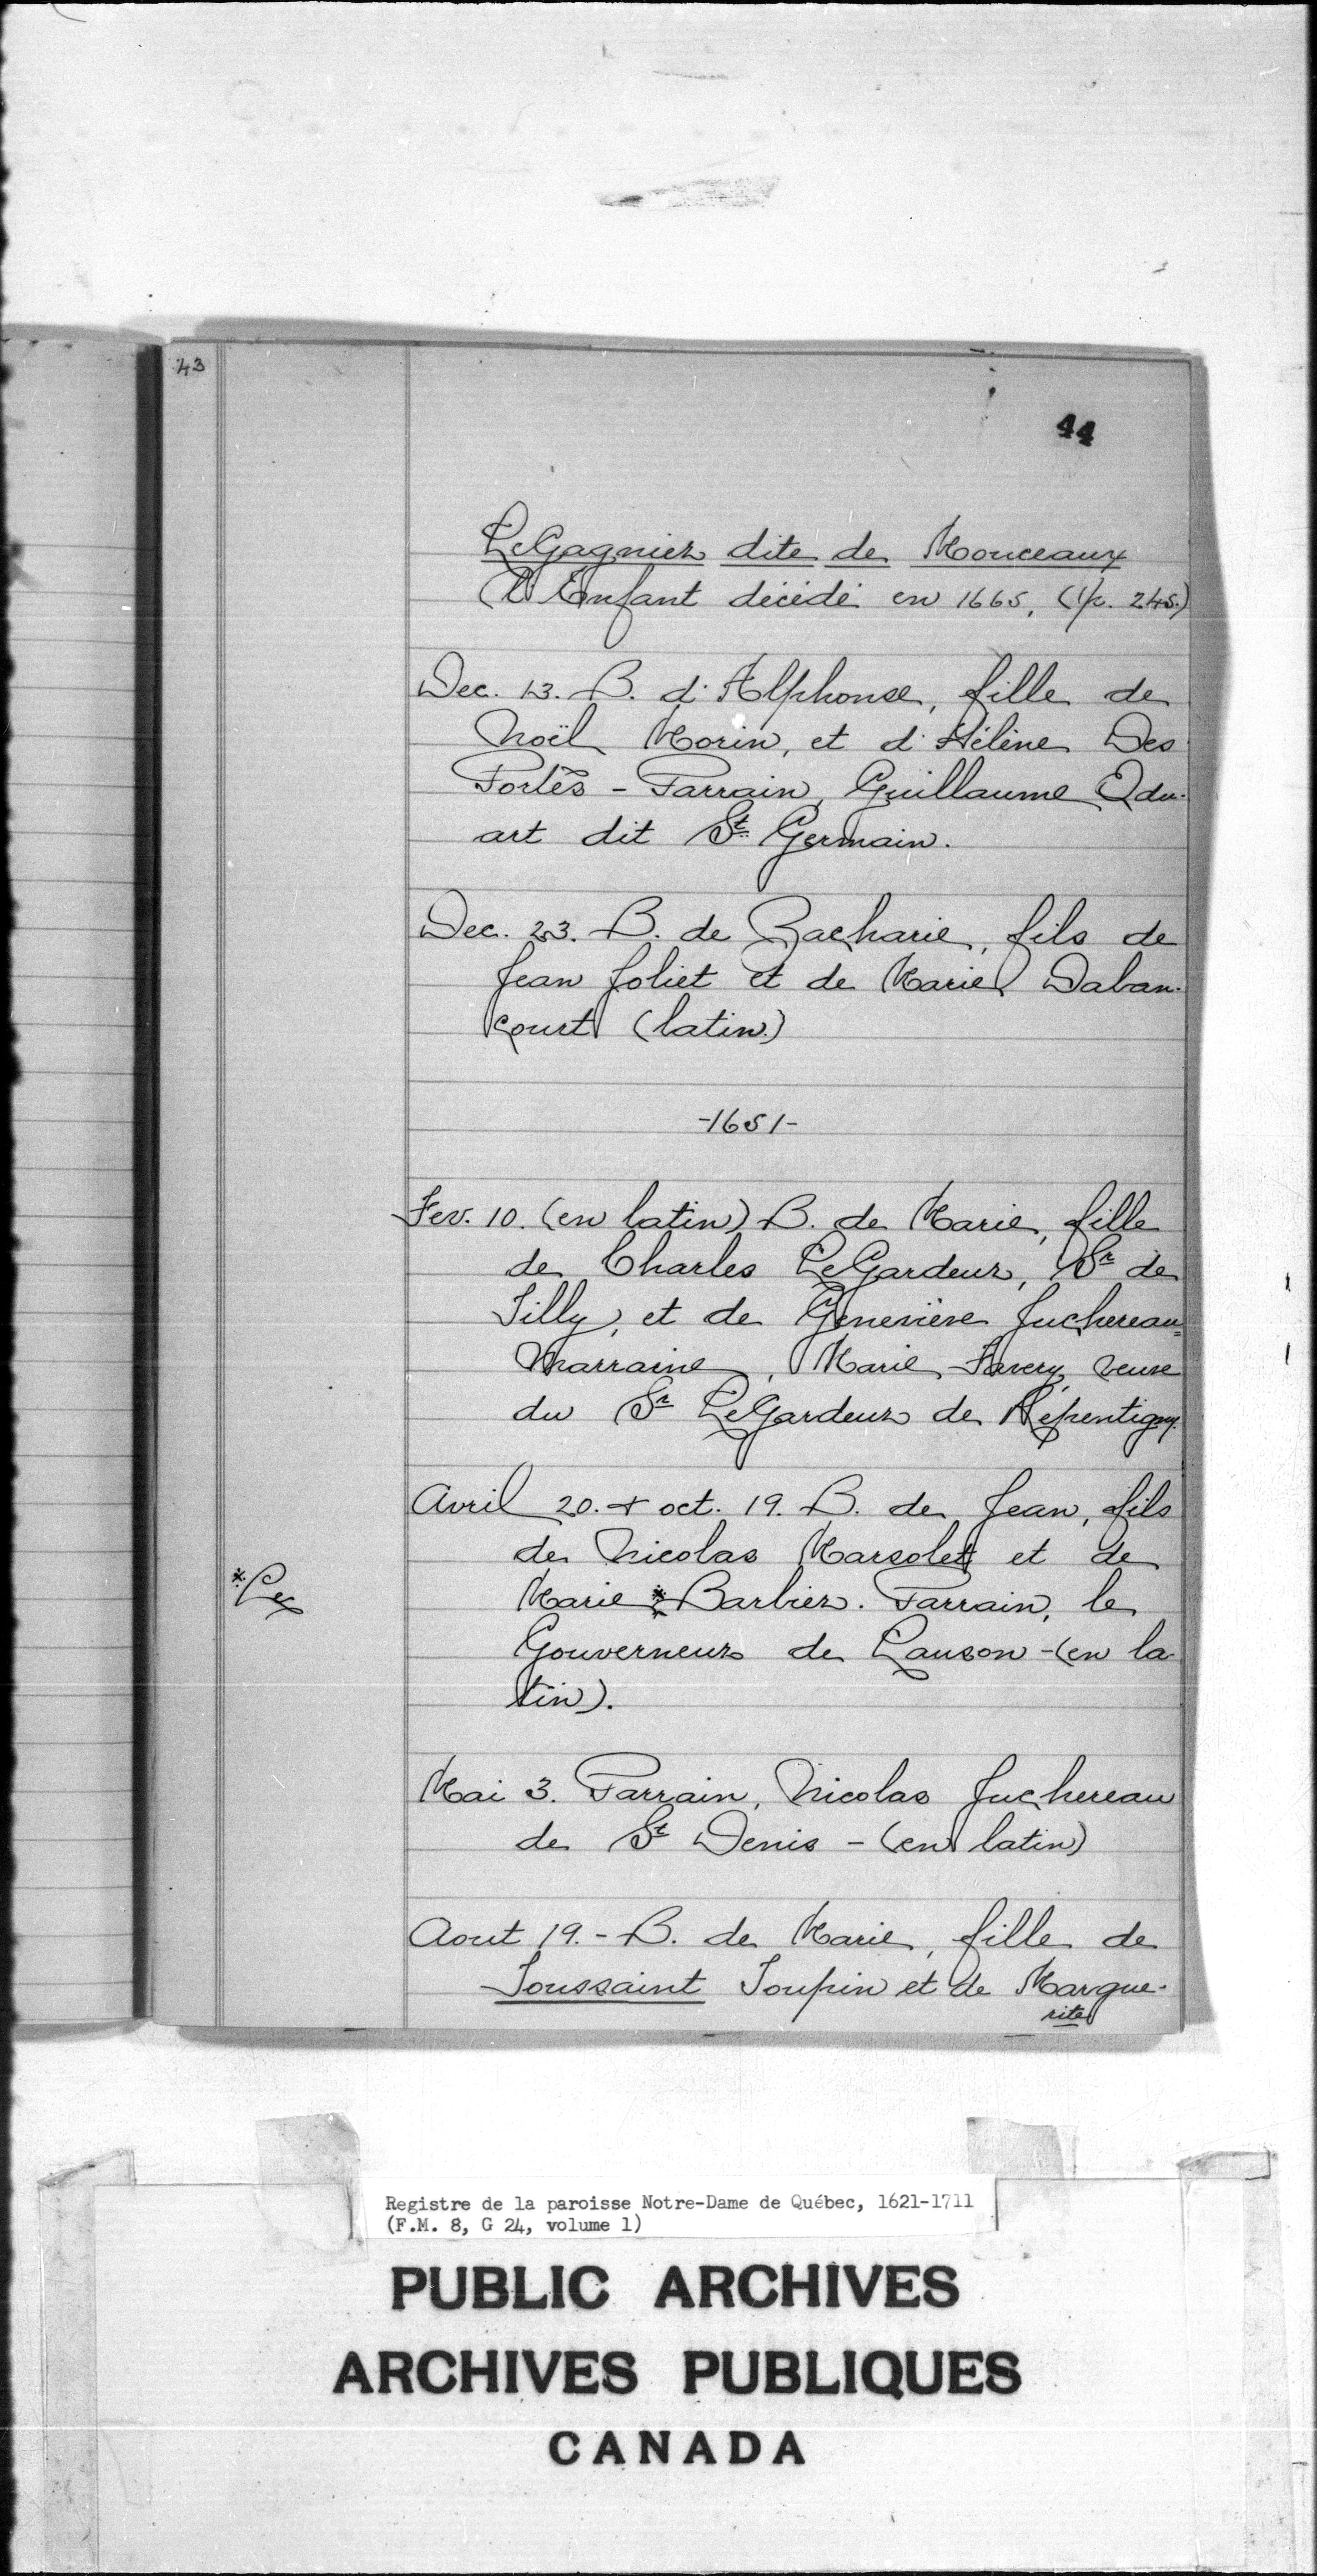 43
44
LeGagnier dite de Monceaux
(L'Enfant décédé en 1665, (p. 245.)
Dec. 13. B. d'Alphonse, fille de
Noël Morin, et d'Hélène Des
Portes - Parrain, Guillaume Edu-
art dit St Germain.
Dec. 23. B. de Zacharie, fils de
Jean Joliet et de Marie Daban-
court (latin)
-1651-
Fev. 10. (en latin) B. de Marie, fille
de Charles LeGardeur, Sr de
Tilly, et de Geneviève Juchereau=
Marraine, Marie Favery, veuve
du Sr LeGardeur de Repentigny.
Avril 20. + oct. 19. B. de Jean, fils
de Nicolas Marsolet et de
*Le
Marie * Barbier. Parrain, le
Gouverneur de Lauson - (en la
tin).
Mai 3. Parrain, Nicolas Juchereau
de St Denis - (en latin)
Aout 19. - B. de Marie, fille de
Toussaint Toupin et de Margue-
rite
Registre de la paroisse Notre-Dame de Québec, 1621-1711
(F.M. 8, G 24, volume 1)
PUBLIC ARCHIVES
ARCHIVES PUBLIQUES
CANADA